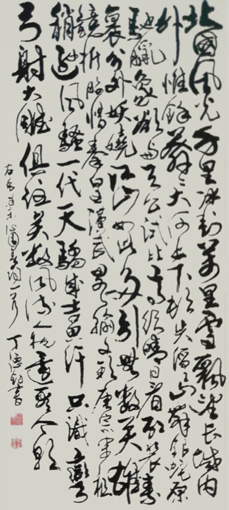 北國風光千里冰封萬里雪飄望長城内
外惟餘莽莽大河上下頓失滔滔山舞銀蛇原
馳臘象欲與天公試比高須晴日看紅裝素
裹分外妖嬈江山如此多嬌引無數英雄
競折腰惜秦皇漢武略輸文采唐宗宋祖
稍遜風騷一代天驕成吉思汗只識彎
弓射大雕俱往矣數風流人物還看今朝
詞一首 丁德 書